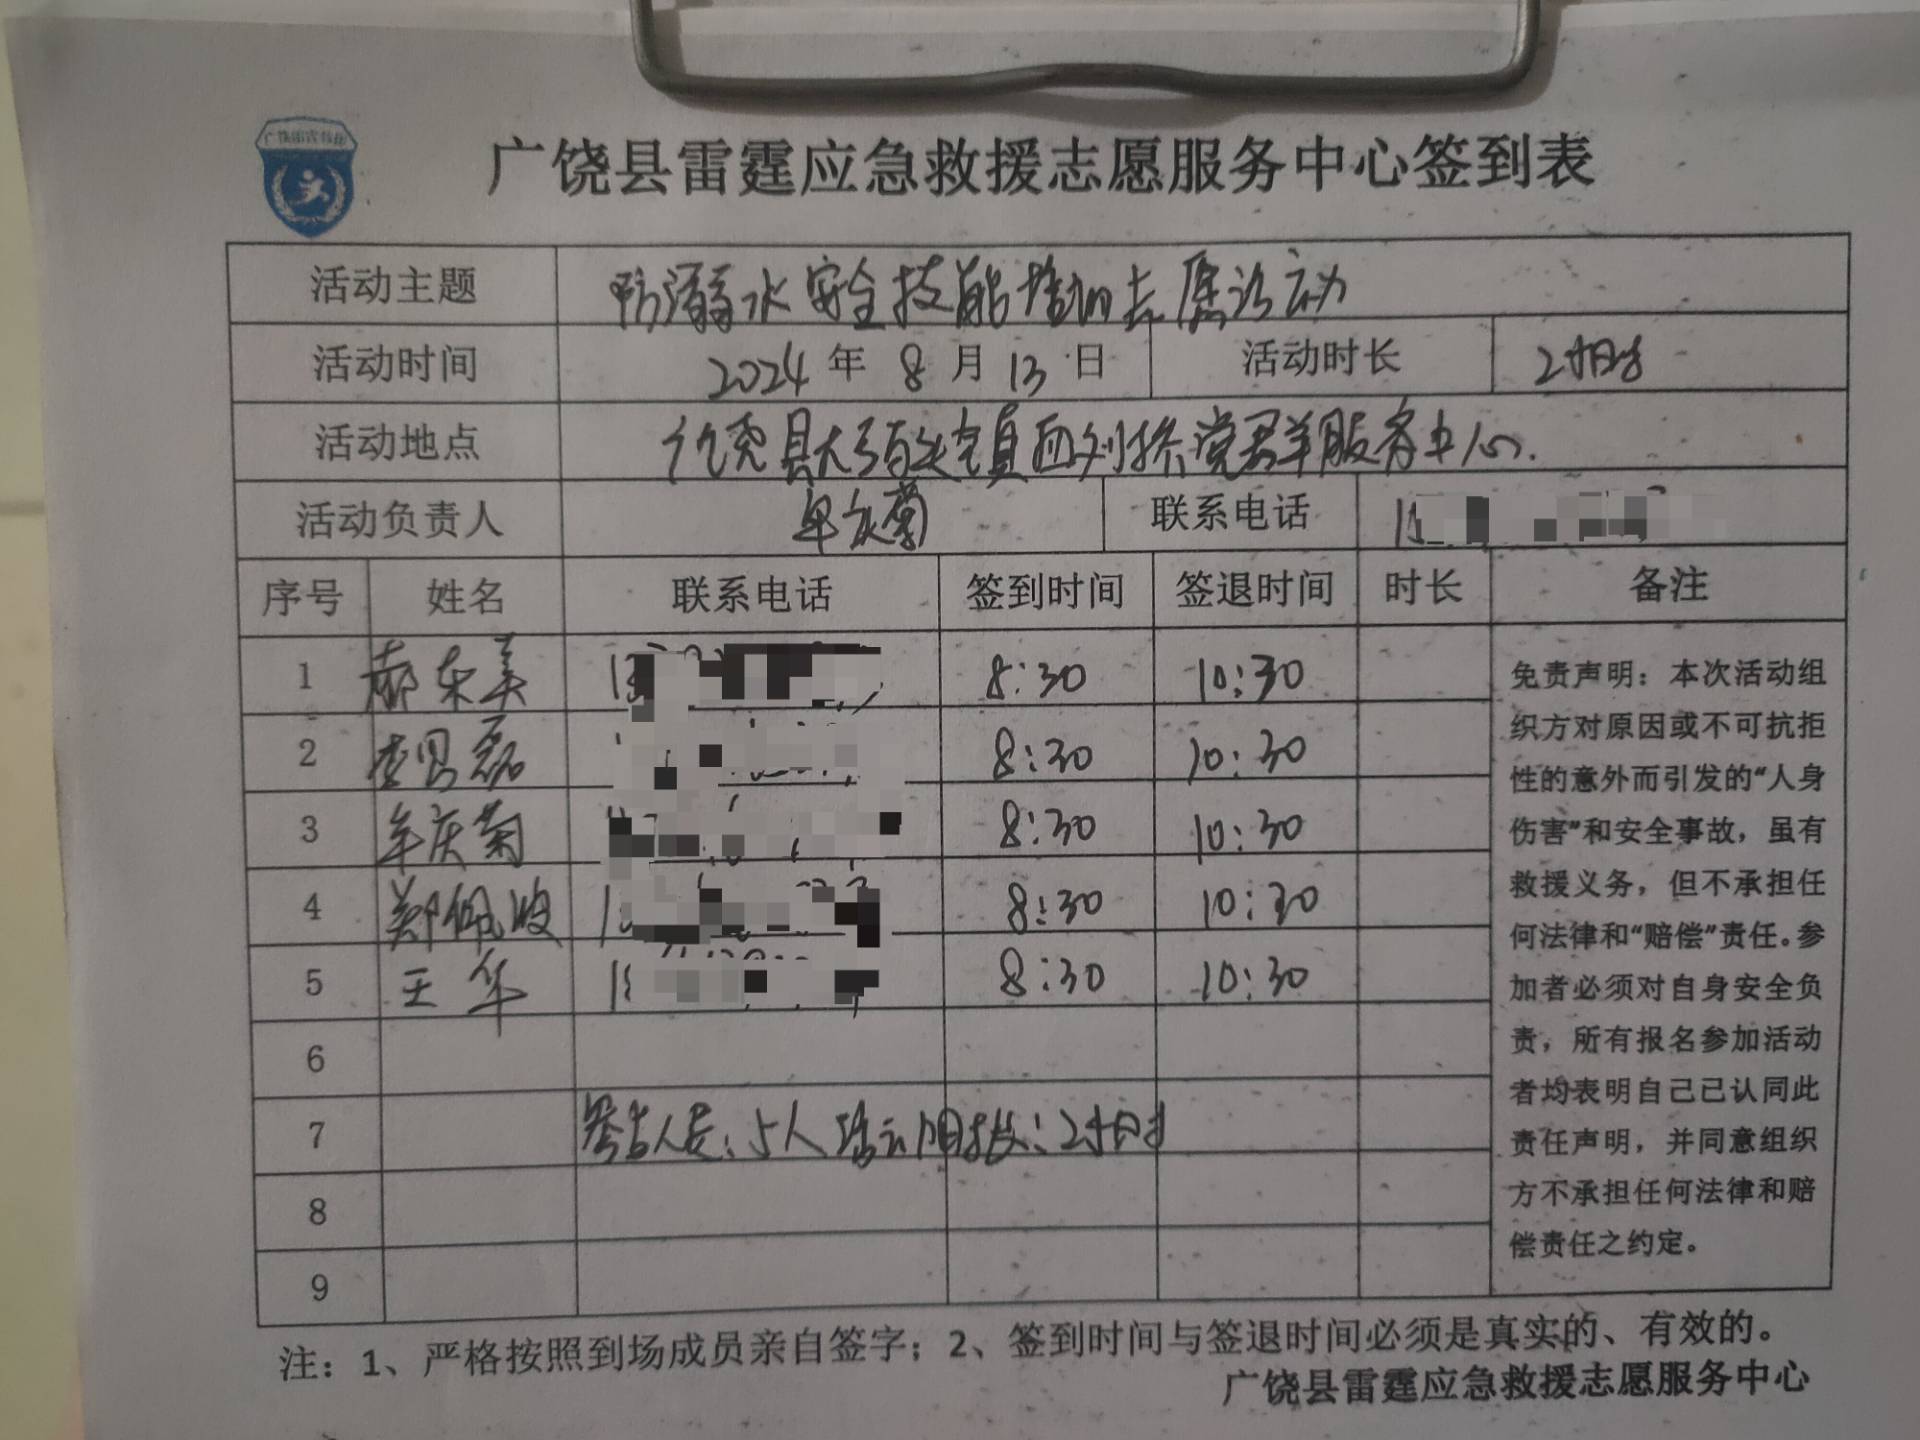 广饶县雷霆应急救援志愿服务中心签到表
活动主题 防溺水安全技能培训志愿活动
活动时间 2024年8月13日 活动时长 2小时
活动地点 广饶县大码头镇西刘桥党群服务中心.
活动负责人 牟庆菊 联系电话 1
序号 姓名 联系电话 签到时间 签退时间 时长 备注
1 郝东美 1 8:30 10:30
2 李昌磊 8:30 10:30
3 牟庆菊 8:30 10:30
4 郑佩波 1 8:30 10:30
5 王华 1 8:30 10:30
6
7 人员:5人 活动时长:2小时
8
9
免责声明：本次活动组
织方对原因或不可抗拒
性的意外而引发的“人身
伤害”和安全事故，虽有
救援义务，但不承担任
何法律和“赔偿”责任。参
加者必须对自身安全负
责，所有报名参加活动
者均表明自己已认同此
责任声明，并同意组织
方不承担任何法律和赔
偿责任之约定。
注：1、严格按照到场成员亲自签字；2、签到时间与签退时间必须是真实的、有效的。
广饶县雷霆应急救援志愿服务中心